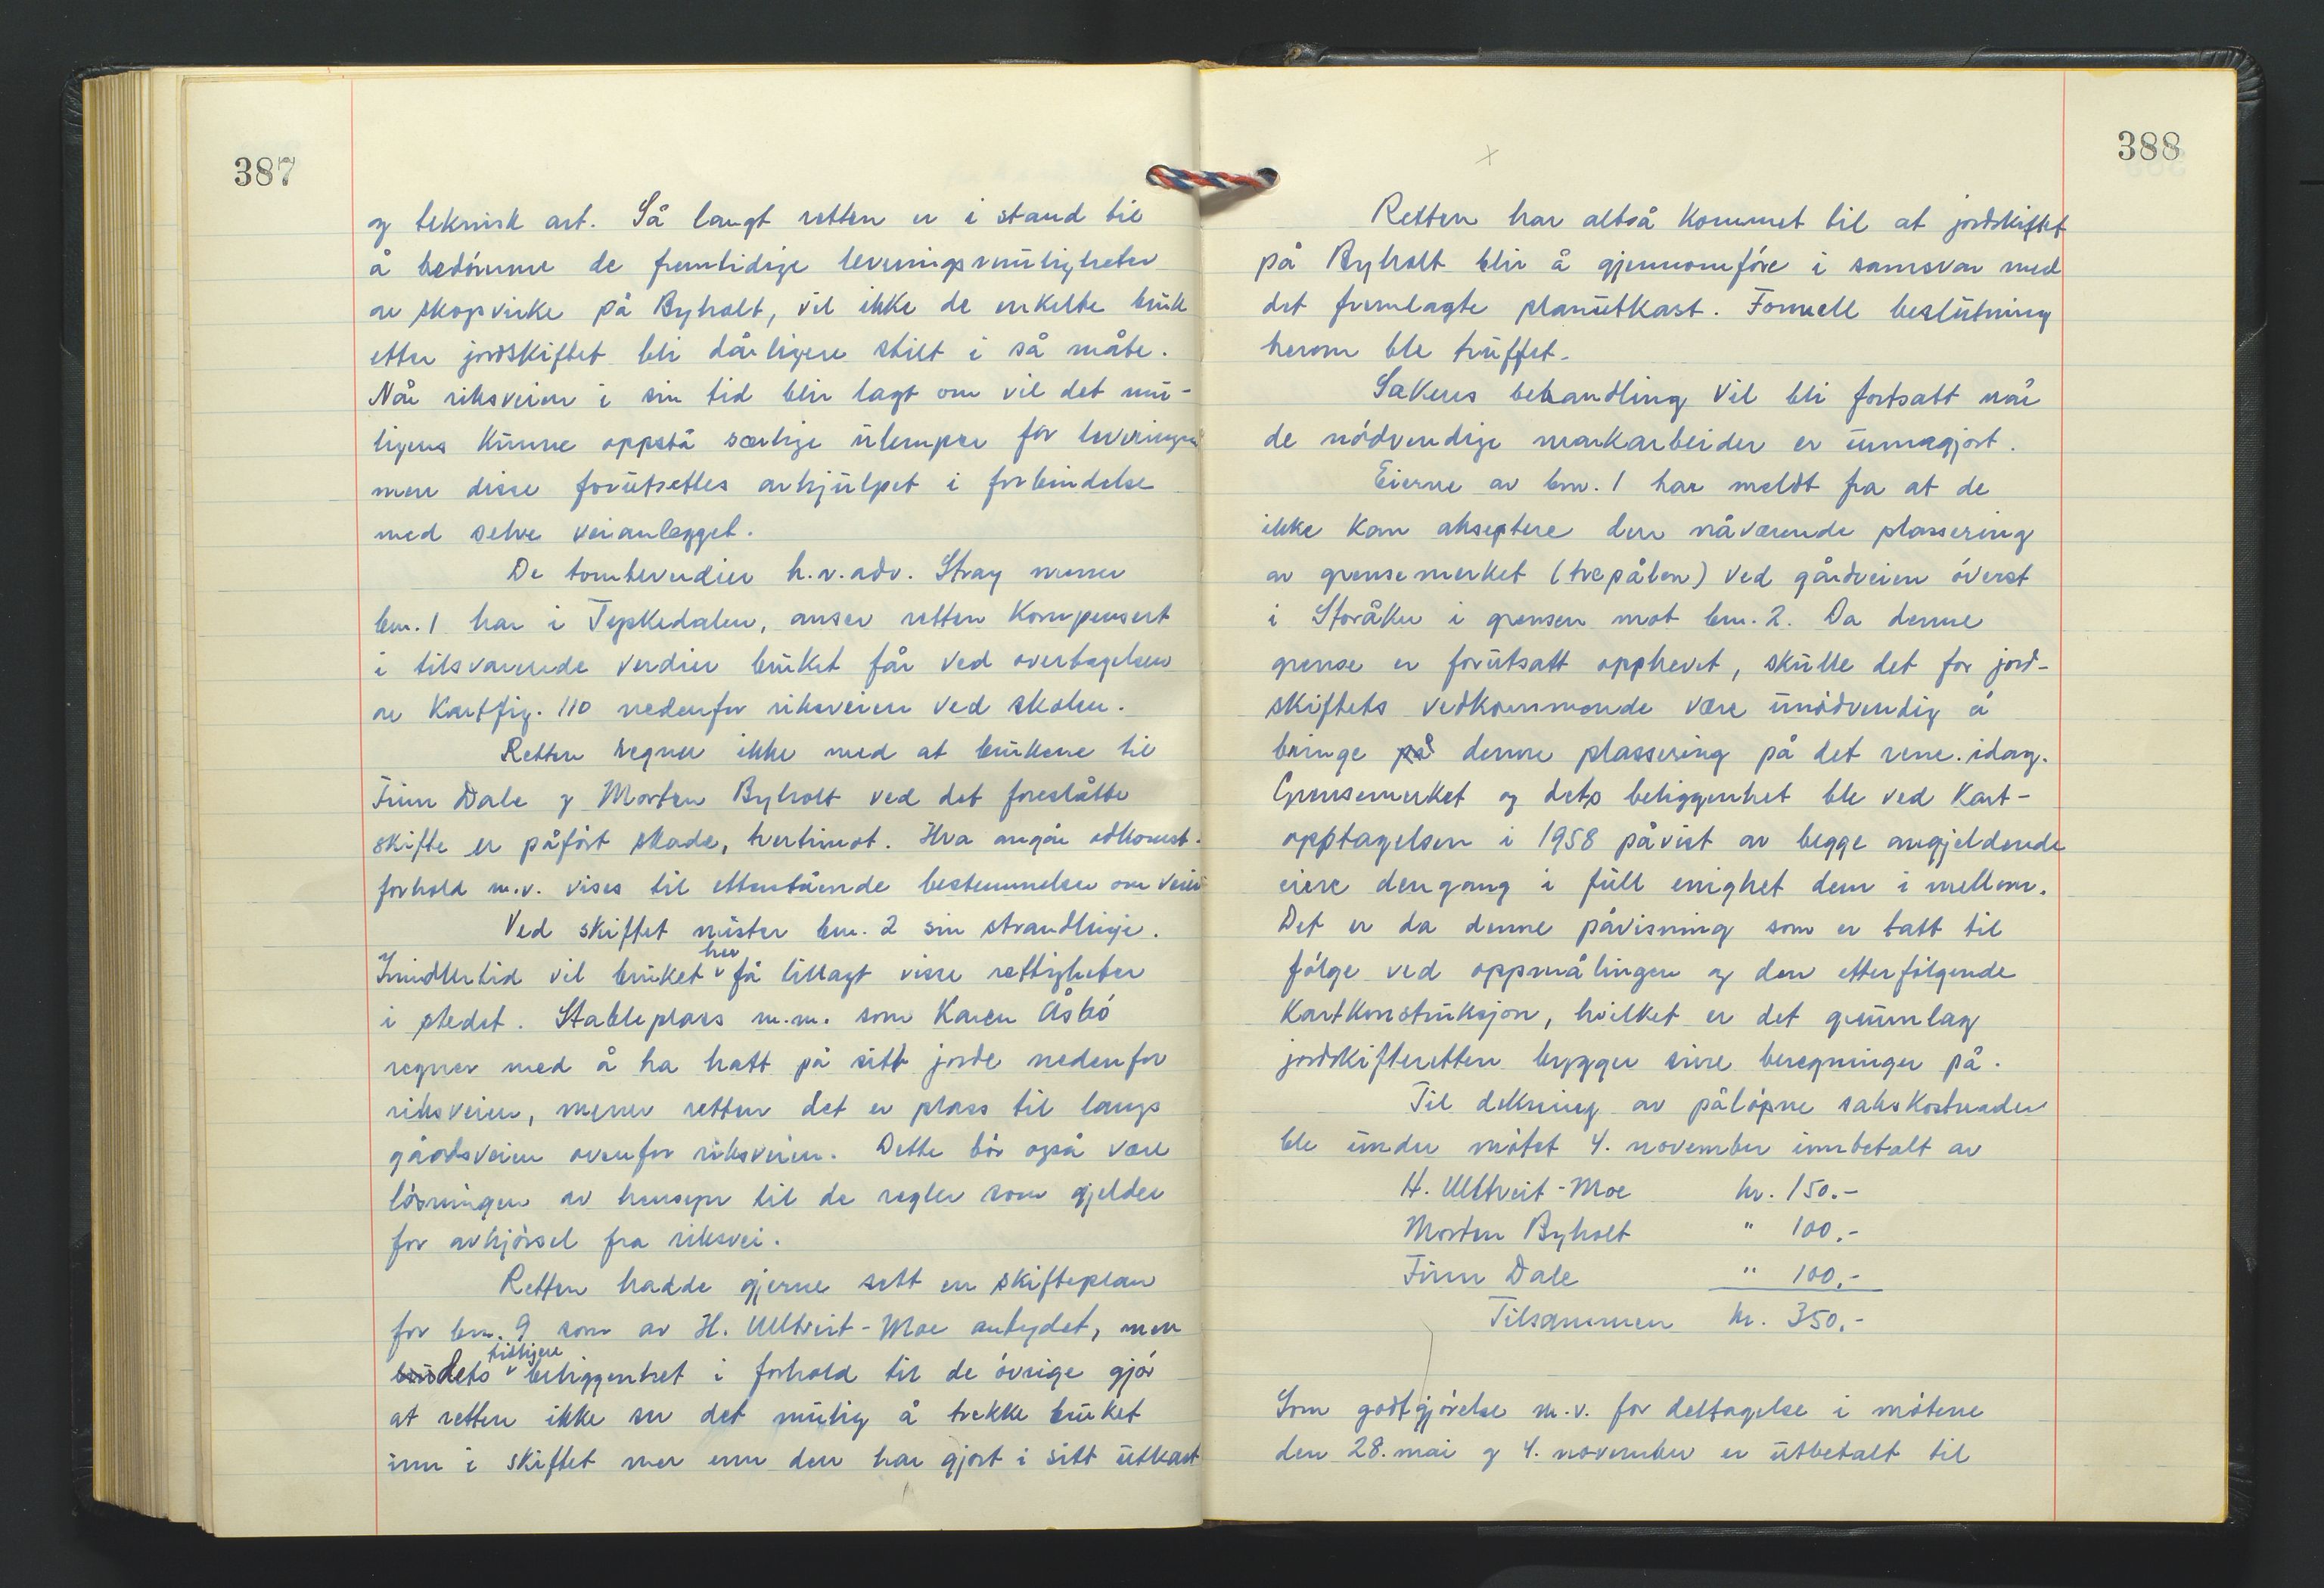 387
og teknisk art. Så langt retten er i stand til
å bedömme de fremtidige leveringsmuligheter
av skogvirke på Byholt, vil ikke de enkelte bruk
etter jordskiftet bli dårligere stilt i så måte.
Når riksveien i sin tid blir lagt om vil det mu-
ligens kunne oppstå særlige ulemper for leveringen
men disse forutsettes avhjulpet i forbindelse
med selve veianlegget.
De tomteverdier h.r.adv. Stray mener
bnr. 1 har i Tyskedalen, anser retten kompensert
i tilsvarende verdier bruket får ved overtagelsen
av Kartfig. 110 nedenfor riksveien ved skolen.
Retten regner ikke med at brukene til
Finn Dale og Morten Byholt ved det foreslåtte
skifte er påfört skade, tvertimot. Hva angår adkomst-
forhold m.v. vises til etterstående bestemmelser om veier
Ved skiftet mister bnr. 2 sin strandlinje.
Imidlertid vil bruket her få tillagt visse rettigheter
i stedet. Stableplass m.m. som Karen Åsbö
regner med å ha hatt på sitt jorde nedenfor
riksveien, mener retten det er plass til langs
gårdsveien ovenfor riksveien. Dette bör også være
lösningen av hensyn til de regler som gjelder
for avkjörsel fra riksvei.
Retten hadde gjerne sett en skifteplan
for bnr. 9 som av H. Ulltveit-Moe antydet, men
dets tidligere beliggenhet i forhold til de övrige gjör
at retten ikke ser det mulig å trekke bruket
inn i skiftet mer enn den har gjort i sitt utkast
388
Retten har altså kommet til at jordskiftet
på Byholt blir å gjennomföre i samsvar med
det fremlagte planutkast. Formell beslutning
herom ble truffet.
Sakens behandling vil bli fortsatt når
de nödvendige markarbeider er unnagjort.
Eierne av bnr. 1 har meldt fra at de
ikke kan akseptere den nåværende plassering
av grensemerket (trepålen) ved gårdveien överst
i Storåker i grensen mot bnr. 2. Da denne
grense er forutsatt opphevet, skulle det for jord-
skiftets vedkommende være unödvendig å
bringe på denne plassering på det rene idag.
Grensemerket og dets beliggenhet ble ved Kart-
opptagelsen i 1958 påvist av begge angjeldende
eiere dengang i full enighet dem i mellom.
Det er da denne påvisning som er tatt til
fölge ved oppmålingen og den etterfölgende
Kartkonstruksjon, hvilket er det grunnlag
jordskifteretten bygger sine beregninger på.
Til dekning av pålöpne sakskostnader
ble under mötet 4. november innbetalt av
H. Ulltveit-Moe kr. 150.-
Morten Byholt " 100.-
Finn Dale " 100.-
Tilsammen kr. 350.-
Som godtgjörelse m.v. for deltagelse i mötene
den 28. mai og 4. november er utbetalt til